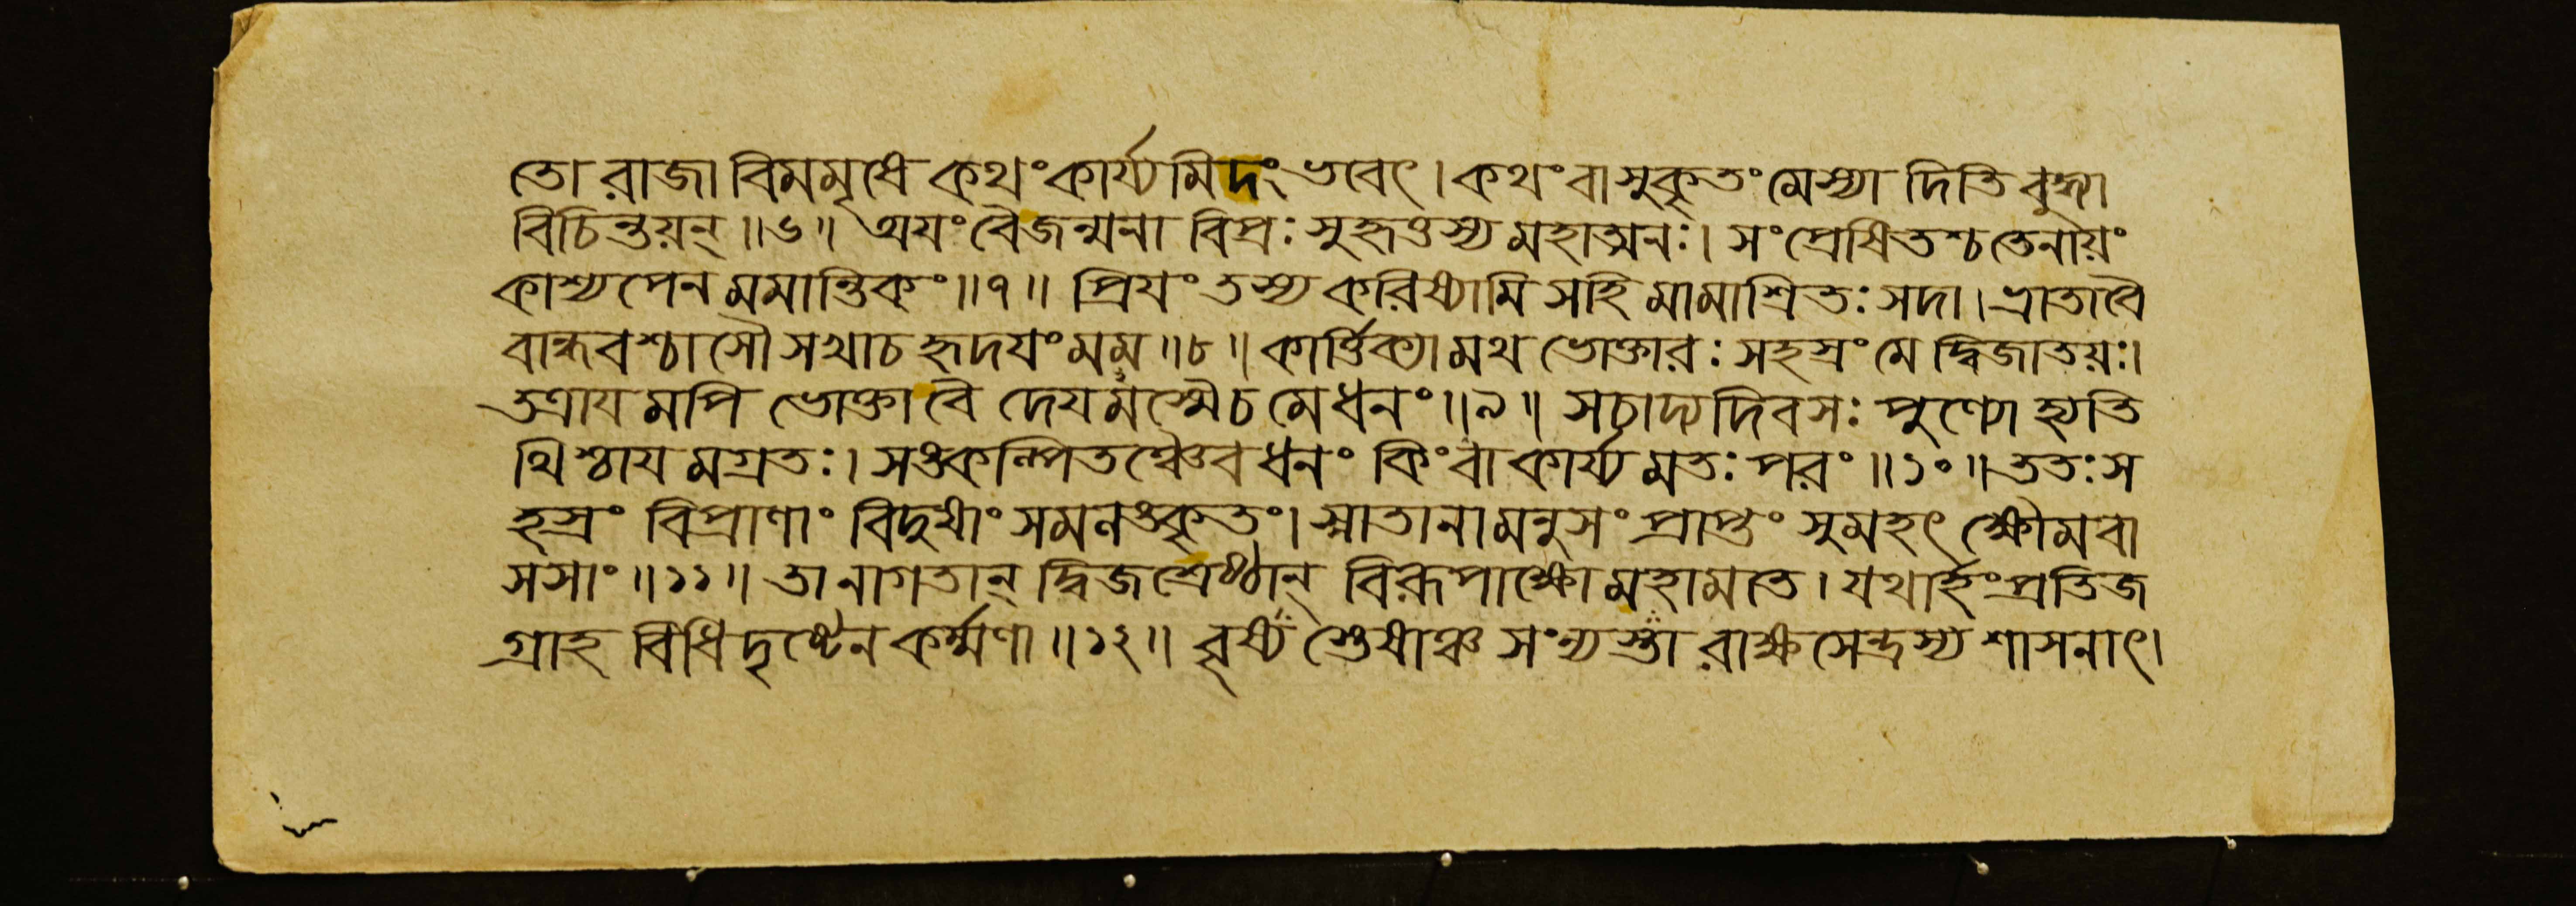 তো রাজা বিমমৃষে কথং কার্য্যমিদং ভবেৎ। কথং বা সুকৃতং মে স্যাদিতি বুদ্ধ্যা
বিচিন্তয়ন্॥৬॥ অযং বৈ জন্মনা বিপ্রঃ সুহৃত্তস্য মহাত্মনঃ। সংপ্রেষিতশ্চ তেনায়ং
কাশ্যপেন মমান্তিকং॥৭॥ প্রিযং তস্য করিষ্যামি স হি মামাশ্রিতঃ সদা। ভ্রাতা বৈ
বান্ধবশ্চাসৌ সখা চ হৃদযংমম॥৮॥ কার্ত্তিক্যামথ ভোক্তারঃ সহস্রং মে দ্বিজাতয়ঃ।
তত্রাযমপি ভোক্তা বৈ দেযমস্মৈ চ মে ধনং॥৯॥ স চাদ্য দিবসঃ পুণ্যো হ্যতি
থিশ্চাযমগ্রতঃ। সঙ্কল্পিতঞ্চৈব ধনং কিং বা কার্য্যমতঃপরং॥১০॥ ততঃ স
হস্রং বিপ্রাণাং বিদুষাং সমলঙ্কৃতং। স্নাতানামনুসংপ্রাপ্তং সুমহৎ ক্ষৌমবা
সসাং॥১১॥ তানাগতান্ দ্বিজশ্রেষ্ঠান্ বিরূপাক্ষো মহামতে। যথার্হং প্রতিজ
গ্রাহ বিধিদৃষ্টেন কর্ম্মণা॥১২॥ বৃষ্য শ্তেষাঞ্চ সংন্যস্তা রাক্ষসেন্দ্রস্য শাসনাৎ।